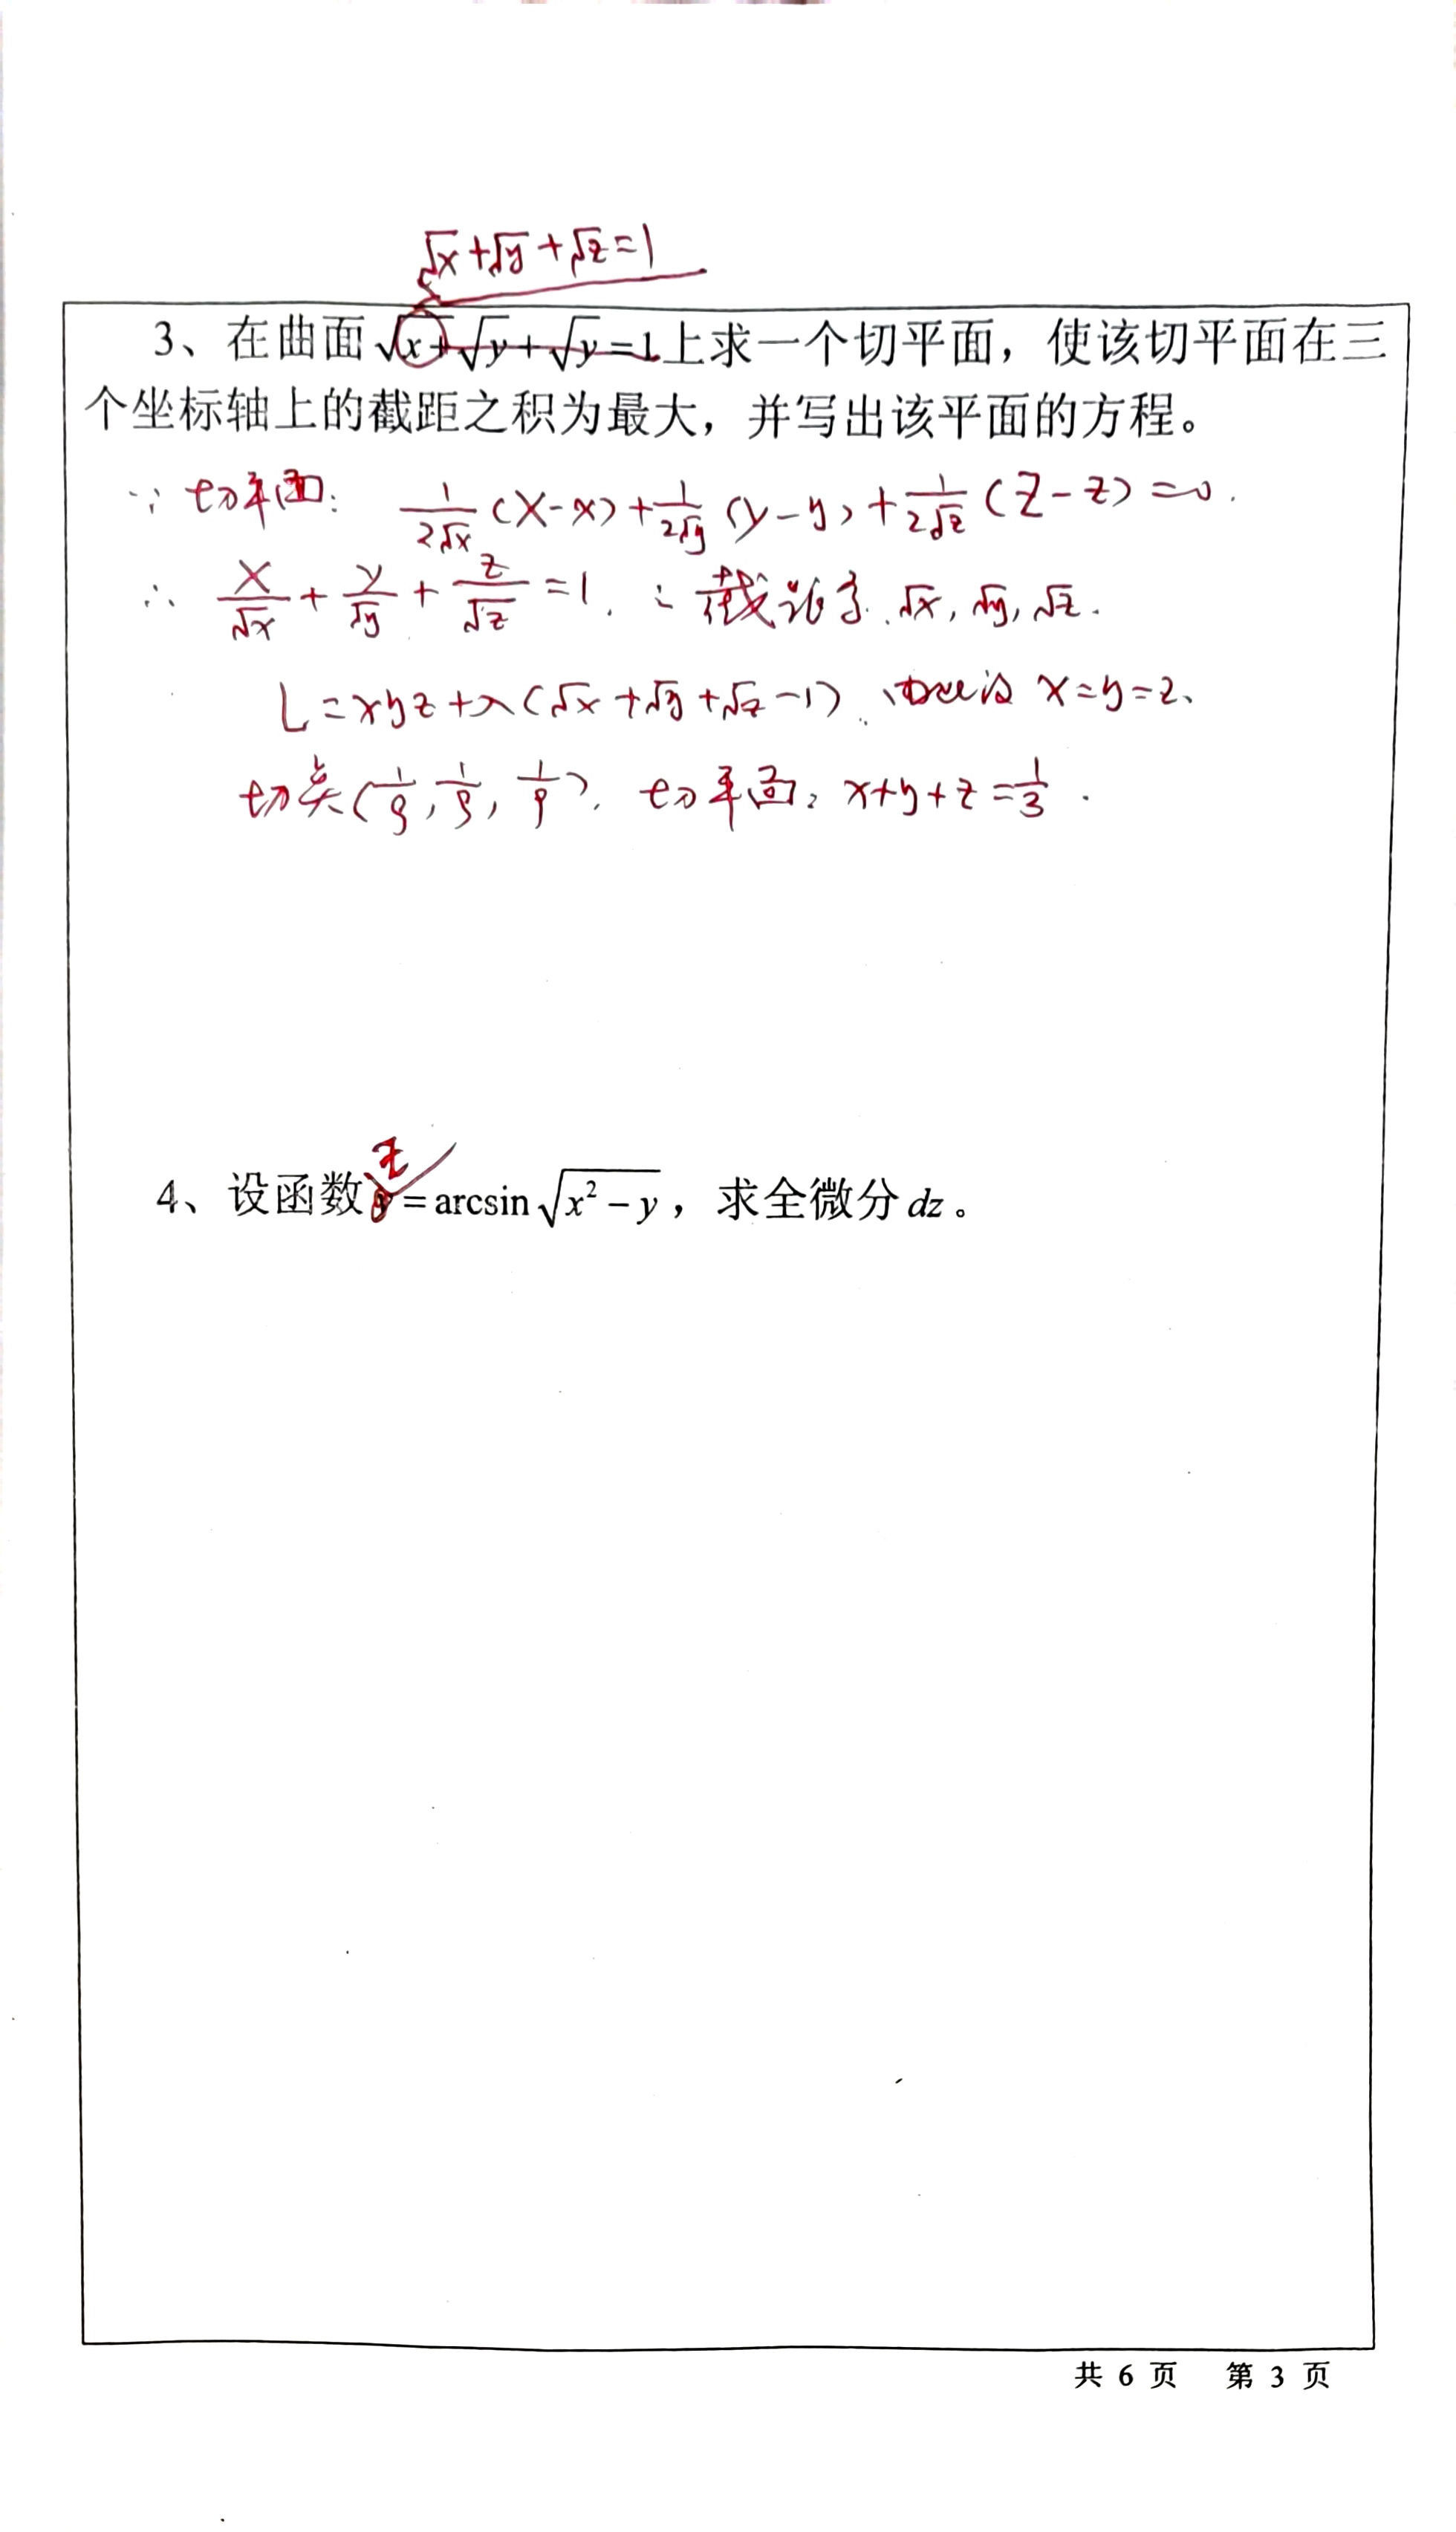 √x+√y+√z=1
3、在曲面√x+√y+√y=1上求一个切平面，使该切平面在三
个坐标轴上的截距之积为最大，并写出该平面的方程。
∵ 切平面: 1/(2√x) (X-x)+1/(2√y) (Y-y)+1/(2√z) (Z-z)=0.
∴ X/√x + Y/√y + Z/√z =1. ∴ 截距为 √x, √y, √z.
L=xyz+λ(√x+√y+√z-1). x=y=z、
切点(1/9, 1/9, 1/9). 切平面: x+y+z=1/3.
z
4、设函数=arcsin√(x²-y)，求全微分dz。
共 6 页 第 3 页